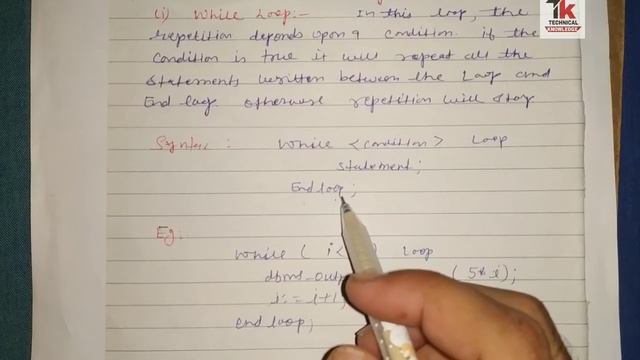 TK
TECHNICAL
KNOWLEDGE
(i) While Loop:- In this loop, the
repetition depends upon a condition. if the
condition is true it will repeat all the
statements written between the Loop and
End loop otherwise repetition will stop
Syntax : While <condition> Loop
statement;
End loop;
Eg:
While ( i< ) Loop
dbms_outp (5*i);
i:= i+1;
end loop;